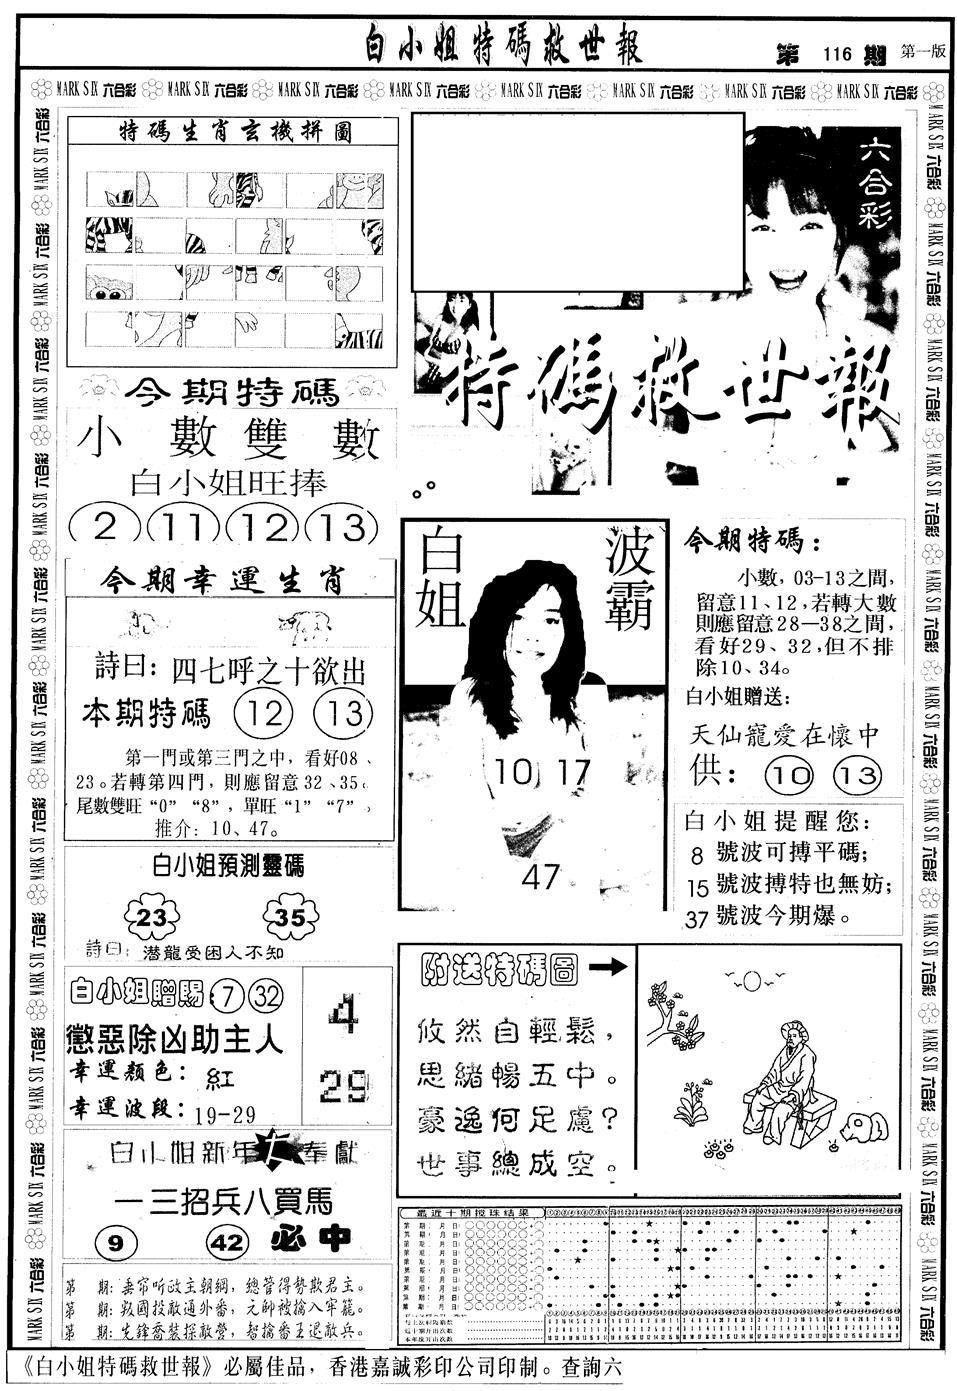 白小姐特碼救世報
第 116 期 第一版
MARK SIX 六合彩 MARK SIX 六合彩 MARK SIX 六合彩 MARK SIX 六合彩 MARK SIX 六合彩 MARK SIX 六合彩 MARK SIX 六合彩 MARK SIX 六合彩
特碼生肖玄機拼圖
今期特碼
小數雙數
白小姐旺捧
2 11 12 13
今期幸運生肖
詩曰: 四七呼之十欲出
本期特碼 12 13
第一門或第三門之中，看好08、
23。若轉第四門，則應留意32、35。
尾數雙旺“0”“8”，單旺“1”“7”。
推介: 10、47。
白小姐預測靈碼
23 35
詩曰: 潛龍受困人不知
白小姐贈賜 7 32
懲惡除凶助主人
幸運顏色: 紅
幸運波段: 19-29
4
29
白小姐新年大奉獻
一三招兵八買馬
9 42 必中
第 期: 垂帘听政主朝綱，總管得勢欺君主。
第 期: 叛國投敵通外番，元帥被擒入牢籠。
第 期: 先鋒喬裝探敵營，智擒番王退敵兵。
六合彩
特碼救世報
白姐
波霸
10 17
47
今期特碼:
小數，03-13之間，
留意11、12，若轉大數
則應留意28—38之間，
看好29、32，但不排
除10、34。
白小姐贈送:
天仙寵愛在懷中
供: 10 13
白小姐提醒您:
8 號波可搏平碼;
15 號波搏特也無妨;
37 號波今期爆。
附送特碼圖
攸然自輕鬆，
思緒暢五中。
豪逸何足慮?
世事總成空。
最近十期搅珠结果
《白小姐特碼救世報》必屬佳品，香港嘉誠彩印公司印制。查詢六